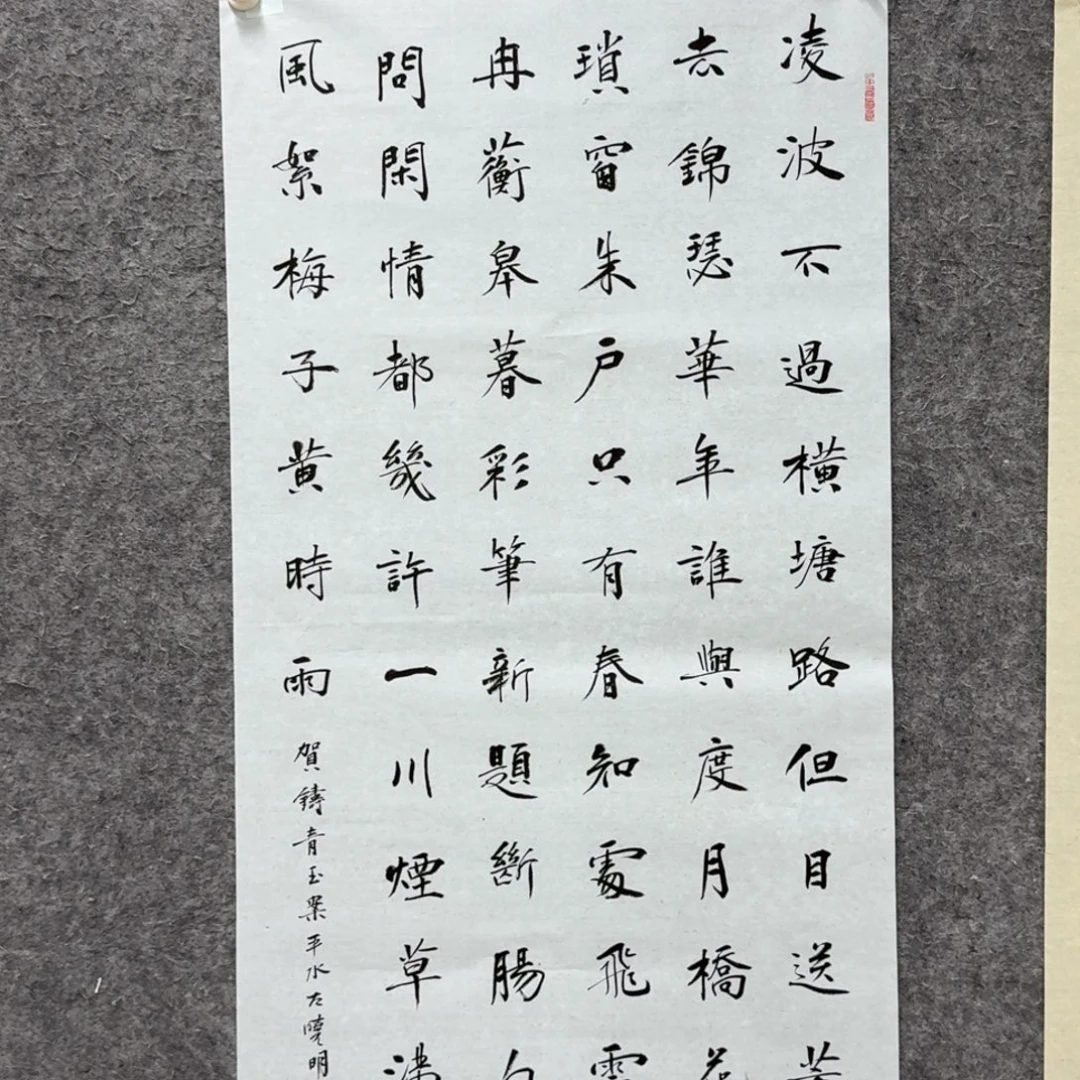 凌波不過橫塘路但目送芳
去錦瑟華年誰與度月橋花
瑣窗朱戶只有春知處飛雲
冉蘅皋暮彩筆新題斷腸
問閑情都幾許一川煙草滿
風絮梅子黃時雨
賀鑄青玉案平水左曉明